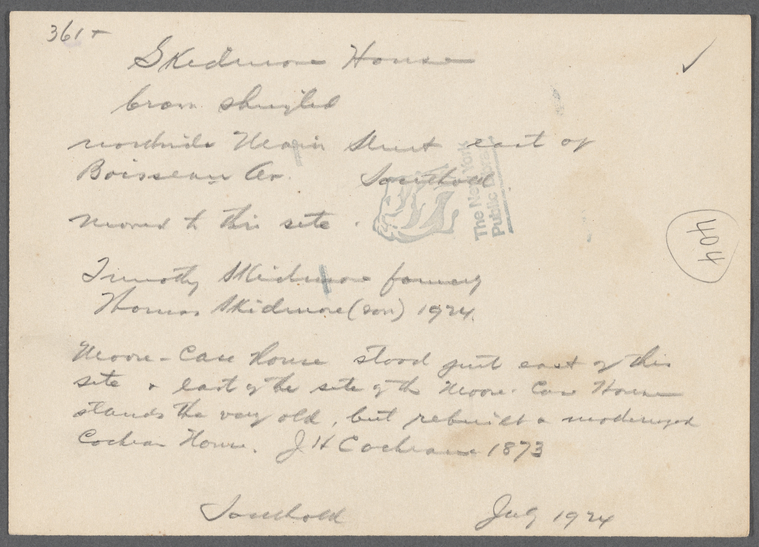 361+
Skidmore House
brown shingled
northside Main Street east of
Boisseau Av. Southold
moved to this site.
The New York
Public Library
404
Timothy Skidmore formerly
Thomas Skidmore (son) 1924.
Moore-Case House stood just east of this
site & east of the site of the Moore-Case House
stands the very old, but rebuilt & modernized
Cochran House. J H Cochrane 1873
Southold July 1924